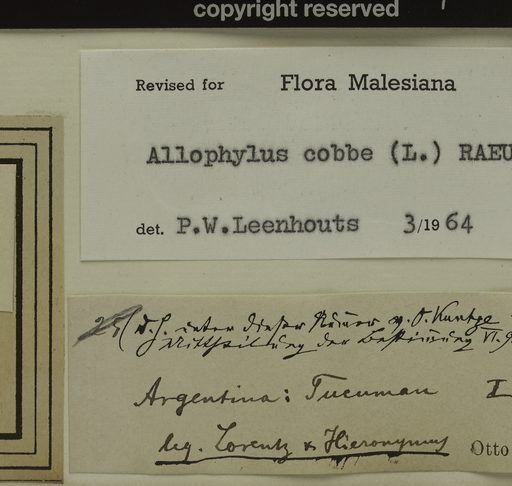 copyright reserved
Revised for Flora Malesiana
Allophylus cobbe (L.) RAEU
det. P.W.Leenhouts 3/1964
unter dieser v. O. Kuntze
Mittheilung der Bestimmung VI.9
Argentina: Tucuman I
leg. Lorentz & Hieronymus Otto